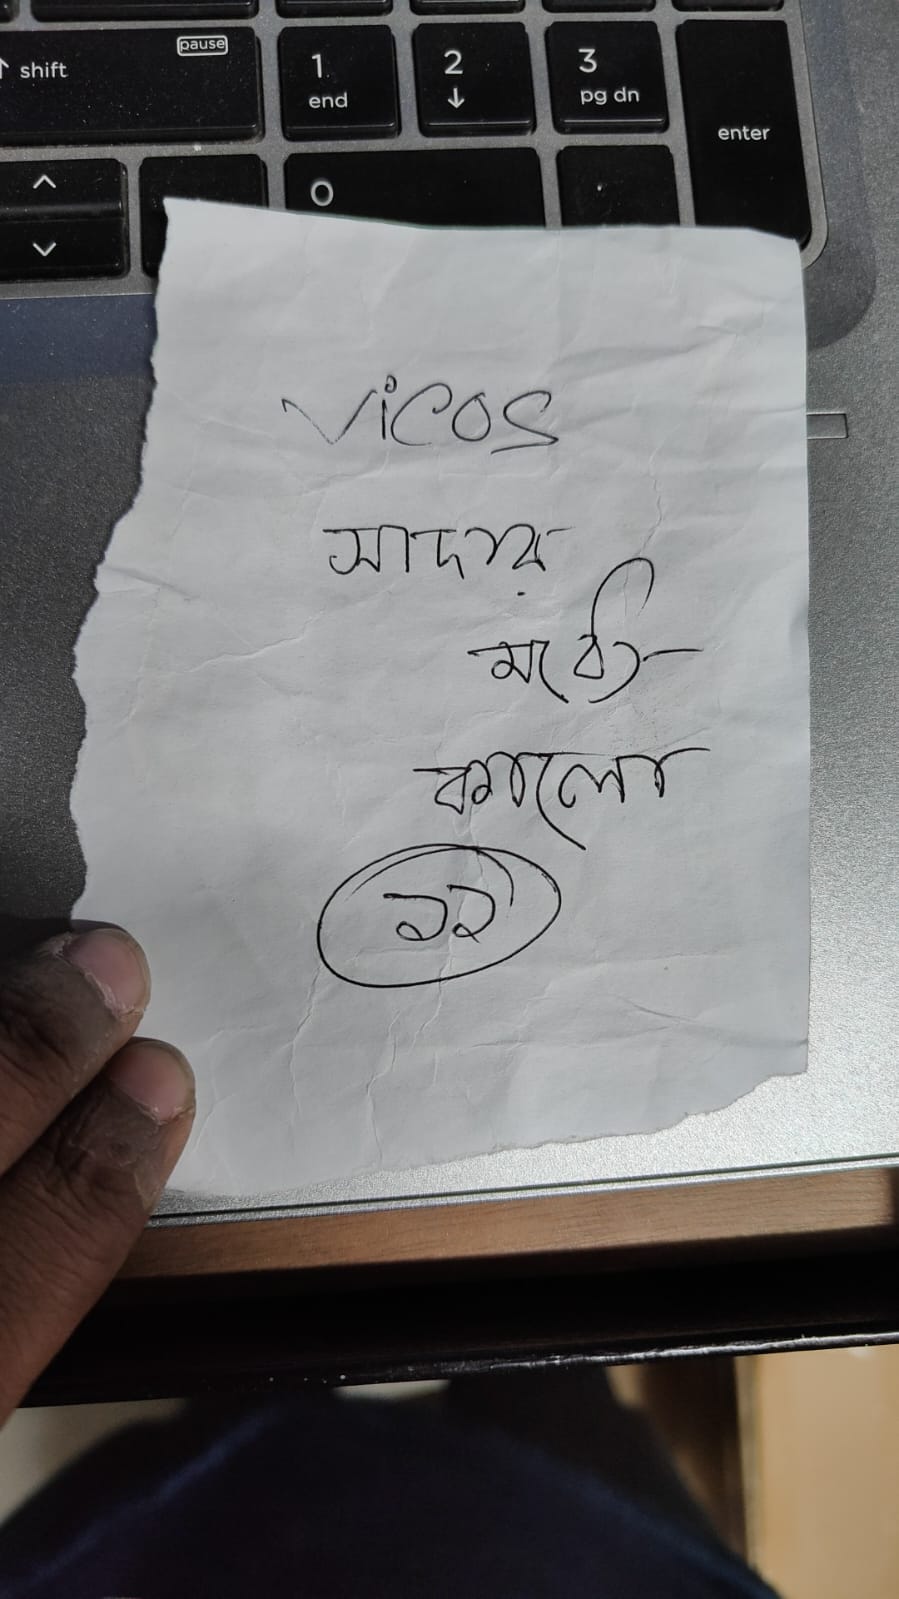 shift
pause
1
end
2
3
pg dn
enter
0
.
ViCOS
সাদার
মধ্যে
কালো
১২